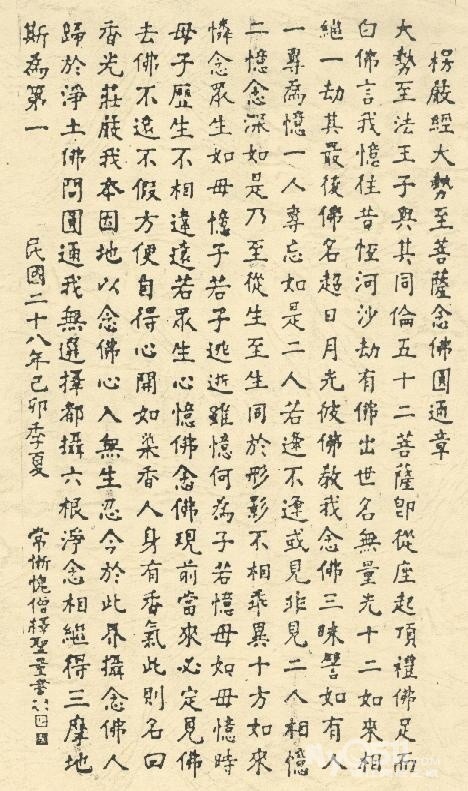 楞嚴經大勢至菩薩念佛圓通章
大勢至法王子與其同倫五十二菩薩即從座起頂禮佛足而
白佛言我憶往昔恒河沙劫有佛出世名無量光十二如來相
繼一劫其最後佛名超日月光彼佛教我念佛三昧譬如有人
一專為憶一人專忘如是二人若逢不逢或見非見二人相憶
二憶念深如是乃至從生至生同於形影不相乖異十方如來
憐念眾生如母憶子若子逃逝雖憶何為子若憶母如母憶時
母子歷生不相違遠若眾生心憶佛念佛現前當來必定見佛
去佛不遠不假方便自得心開如染香人身有香氣此則名曰
香光莊嚴我本因地以念佛心入無生忍今於此界攝念佛人
歸於淨土佛問圓通我無選擇都攝六根淨念相繼得三摩地
斯為第一 民國二十八年己卯季夏 常慚愧僧釋聖量書